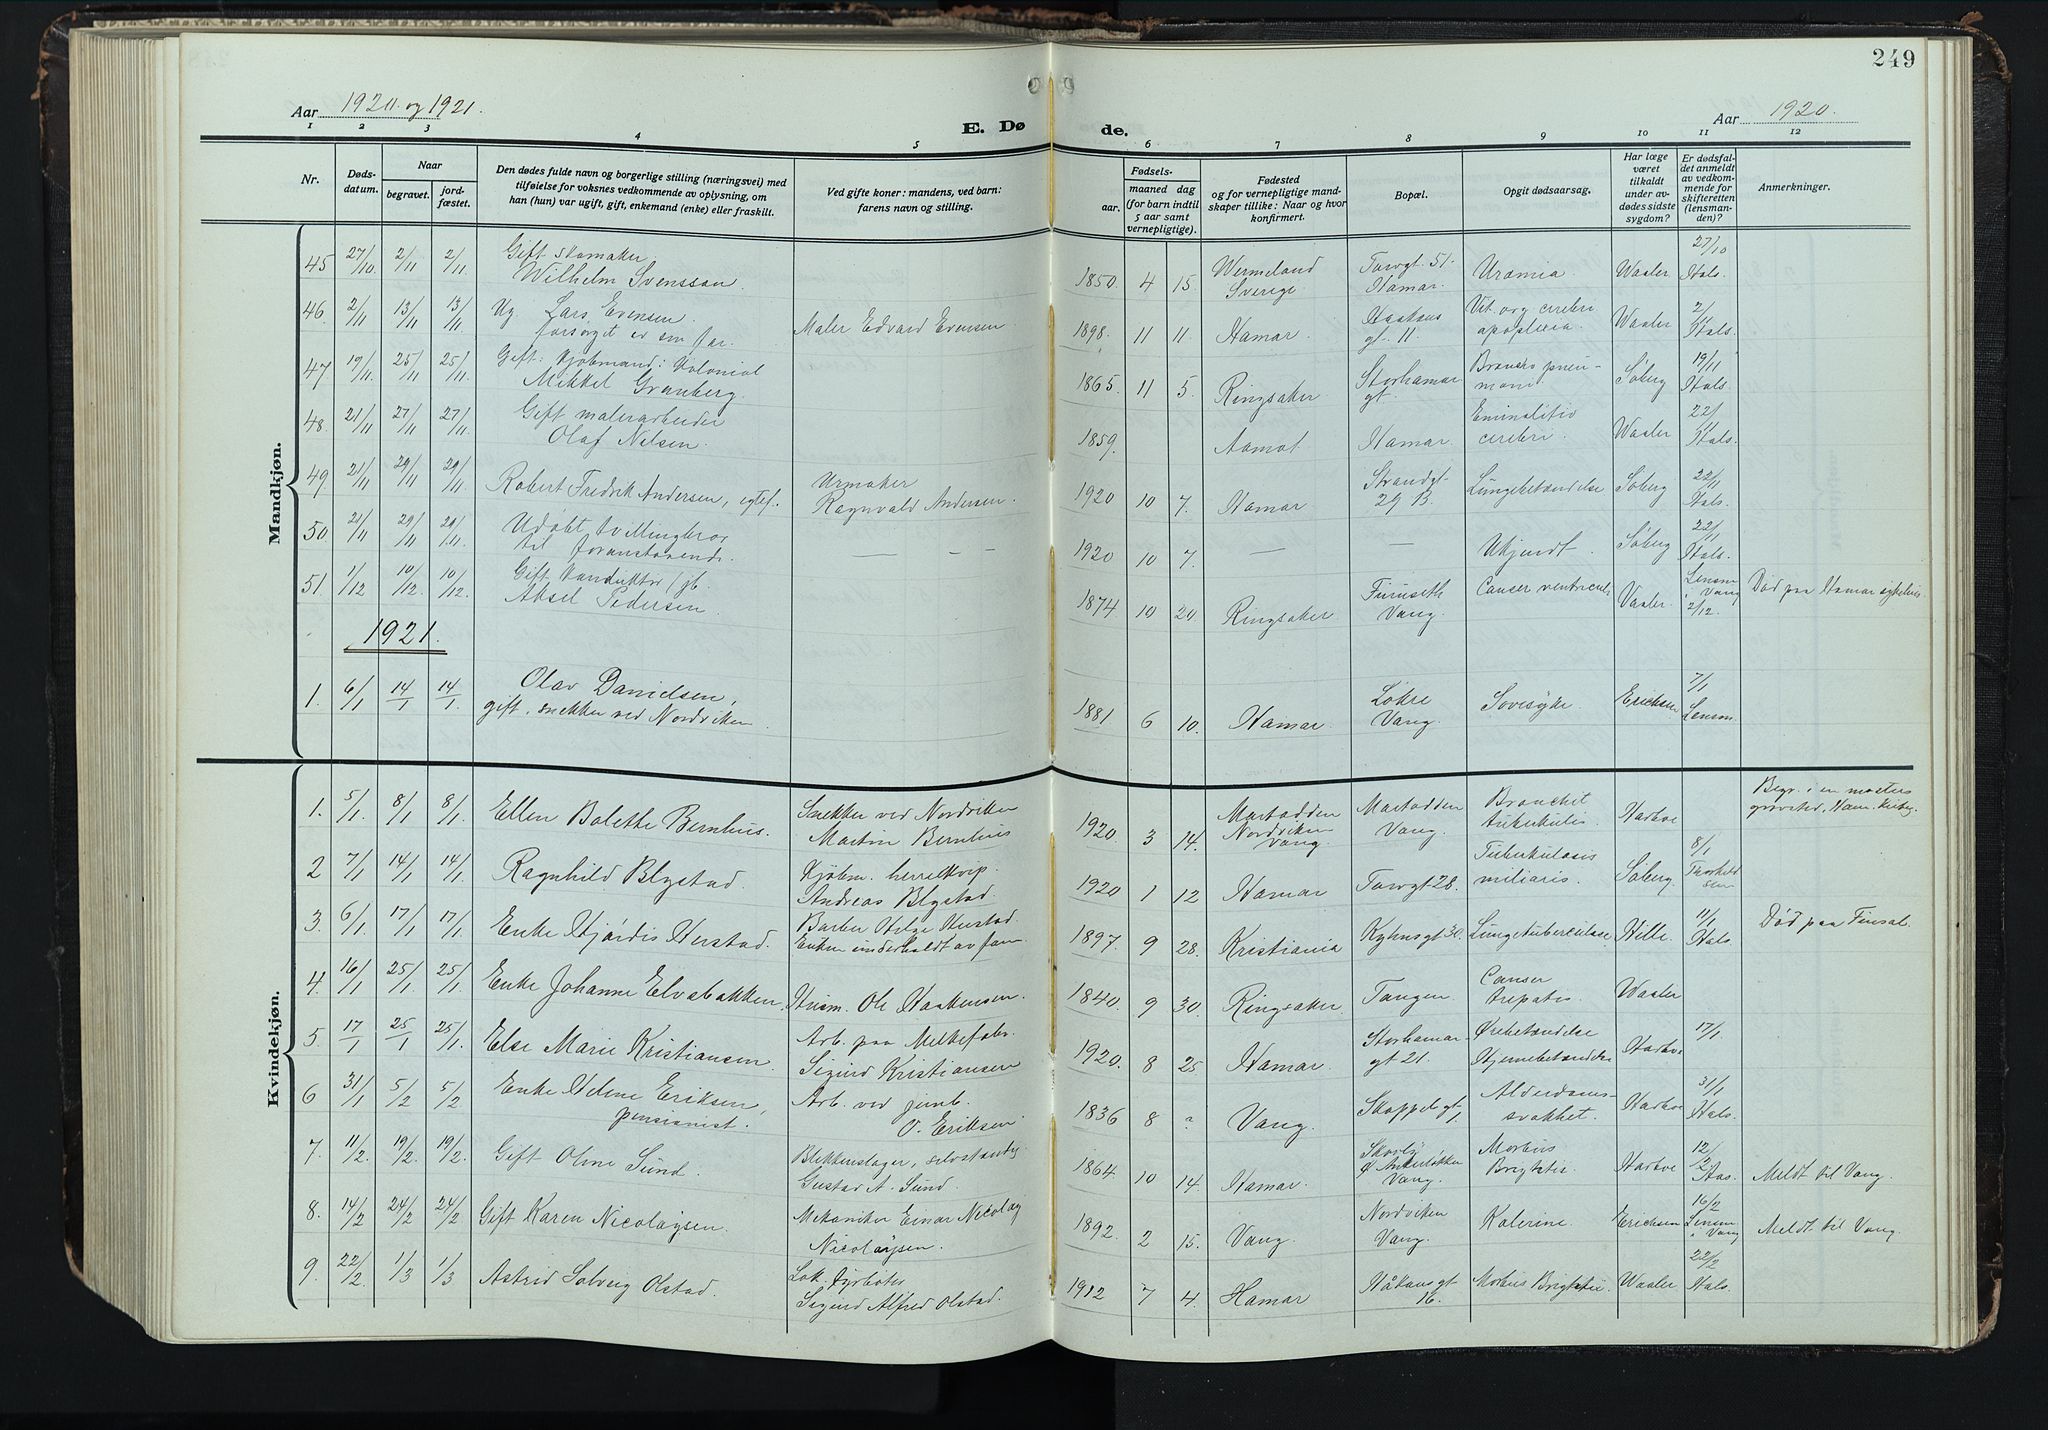 249
Aar 1920 og 1921.
Aar 1920.
E. Dø de.
1 2 3 4 5 6 7 8 9 10 11 12
Nr.
Døds-
datum.
Naar
begravet.
jord-
fæstet.
Den dødes fulde navn og borgerlige stilling (næringsvei) med
tilføielse for voksnes vedkommende av oplysning, om
han (hun) var ugift, gift, enkemand (enke) eller fraskilt.
Ved gifte koner: mandens, ved barn:
farens navn og stilling.
Fødsels-
aar.
maaned dag
(for barn indtil
5 aar samt
vernepligtige).
Fødested
og for vernepligtige mand-
skaper tillike: Naar og hvor
konfirmert.
Bopæl.
Opgit dødsaarsag.
Har læge
været
tilkaldt
under av-
dødes sidste
sygdom?
Er dødsfal-
det anmeldt
av vedkom-
mende for
skifteretten
(lensman-
den)?
Anmerkninger.
Mandkjøn.
45 27/10 2/11 2/11 Gift skomaker
Wilhelm Svensson. 1850. 4 15. Wermeland
Sverige Torvgt. 51.
Hamar. Uræmia. Waaler 27/10
Hals.
46. 2/11 13/11 13/11 Ug. Lars Evensen.
forsørget av sin far. Maler Edvard Evensen 1898. 11 11. Hamar. gt. 11. Vit. org. cerebri
apoplexia. Waaler 2/11
Hals.
47 19/11. 25/11 25/11. Gift. Kjøbmand: Kolonial
Mikkel Granberg. 1865. 11 5. Ringsaker Storhamar
gt. Broncho pneu-
moni Søberg 19/11
Hals.
48. 21/11 27/11 27/11. Gift malerarbeider
Olaf Nilsen. 1859. Aamot Hamar. cerebri. Waaler 22/11
Hals.
49 21/11 29/11 29/11. Robert Fredrik Andersen, egtef. Urmaker
Ragnvald Andersen. 1920 10 7. Hamar Strandgt.
29 B. Lungebetændelse Søberg 22/11
Hals.
50. 21/11 29/11 29/11. Udøbt tvillingbror
til foranstaaende. — — 1920 10 7. — — Ukjendt. Søberg 22/11
Hals.
51. 1/12 10/12. 10/12. Gift konduktør
Aksel Pedersen. 1874. 10 24. Ringsaker Furuseth
Vang. Cancer ventriculi Waaler. Lensm.
i Vang
2/12. Død paa Hamar sykehus.
1921.
1. 6/1 14/1 14/1. Olav Danielsen,
gift, snekker ved Nordviken. 1881. 6 10. Hamar. Løkre
Vang. Sovesyke. Erichsen 7/1
Lensm.
Kvindekjøn.
1. 5/1. 8/1 8/1 Ellen Bolette Bernhus. Snekker ved Nordviken
Martin Bernhus 1920. 3 14. Martodden
Nordviken
Vang. Martodden
Vang. Bronchit
tuberkulis. Harboe Begr. i en mosters
gravsted, Ham. kirkeg.
2 7/1 14/1 14/1. Ragnhild Blystad. Kjøbm. herrekvip.
Andreas Blystad. 1920. 1 12 Hamar Torvgt 28. Tuberkulosis
miliaris. Søberg. 8/1
Thorkild
sen
3. 6/1. 17/1 17/1. Enke Hjørdis Herstad. Barber Helge Herstad.
Enken underholdt av fam. 1897. 9 28. Kristiania Kyhnsgt 30. Lungetuberculose Hille. 11/1
Hals. Død paa Finsal.
4. 16/1 25/1 25/1. Enke Johanne Elvebakken. Husm. Ole Haakensen. 1840. 9 30. Ringsaker. Tangen. Canser
hepatis. Waaler
5. 17/1 25/1 25/1. Else Marie Kristiansen. Arb. paa Melkefabr.
Sigurd Kristiansen 1920. 8 25. Hamar. Storhamar-
gt 21. Ørebetændelse
Hjernebetændelse Harboe 17/1.
6 31/1 5/2 5/2 Enke Helene Eriksen,
pensionist. Arb. ved jernb.
O. Eriksen 1836 8 ? Vang. Skappelsgt
1. Alderdoms-
svakhet. Harboe 31/1
Hals.
7. 11/2. 19/2. 19/2. Gift Oline Sund. Blikkenslager, selvstændig.
Gustav A. Sund. 1864. 10 14. Hamar. Skovly
Vang. Morbus
Brigtii. Harboe 12/2
Hals. Meldt til Vang.
8. 14/2 24/2 24/2 Gift Karen Nicolaysen. Mekaniker Einar Nicolay
Nicolaysen. 1892. 2 15. Vang. Nordviken
Vang. Erichsen 16/2
Lensm.
i Vang Meldt til Vang.
9. 22/2 1/3 1/3 Astrid Solveig Olstad. Lok. fyrbøter
Sigurd Alfred Olstad. 1912 7 4. Hamar Håkonsgt
16. Morbus Brightii Waaler 22/2
Hals.